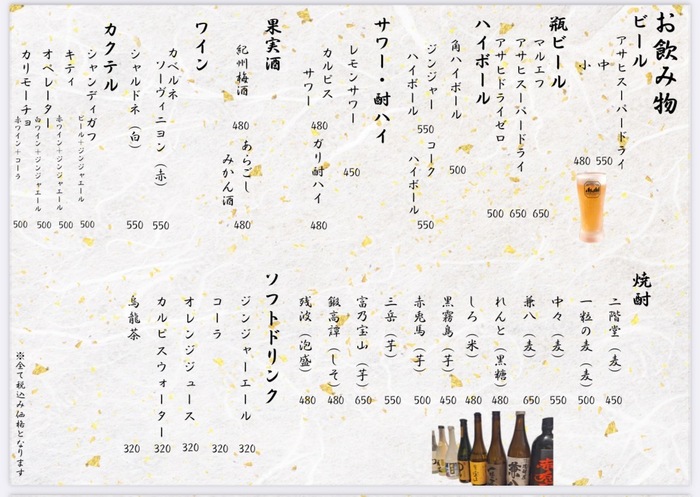 お飲み物
ビール
アサヒスーパードライ
中 550
小 480
瓶ビール
マルエフ 650
アサヒスーパードライ 650
アサヒドライゼロ 500
ハイボール
角ハイボール 500
ジンジャーハイボール 550
コークハイボール 550
サワー・酎ハイ
レモンサワー 450
カルピスサワー 480
ガリ酎ハイ 480
果実酒
紀州梅酒 480
あらごしみかん酒 480
ワイン
カベルネソーヴィニヨン（赤） 550
シャルドネ（白） 550
カクテル
シャンディガフ ビール＋ジンジャエール 500
キティ 赤ワイン＋ジンジャエール 500
オペレーター 白ワイン＋ジンジャエール 500
カリモーチョ 赤ワイン＋コーラ 500
焼酎
二階堂（麦） 450
一粒の麦（麦） 500
中々（麦） 550
兼八（麦） 650
れんと（黒糖） 480
しろ（米） 480
黒霧島（芋） 450
赤兎馬（芋） 500
三岳（芋） 550
富乃宝山（芋） 650
鍛高譚（しそ） 480
残波（泡盛） 480
ソフトドリンク
ジンジャーエール 320
コーラ 320
オレンジジュース 320
カルピスウォーター 320
烏龍茶 320
※全て税込み価格となります